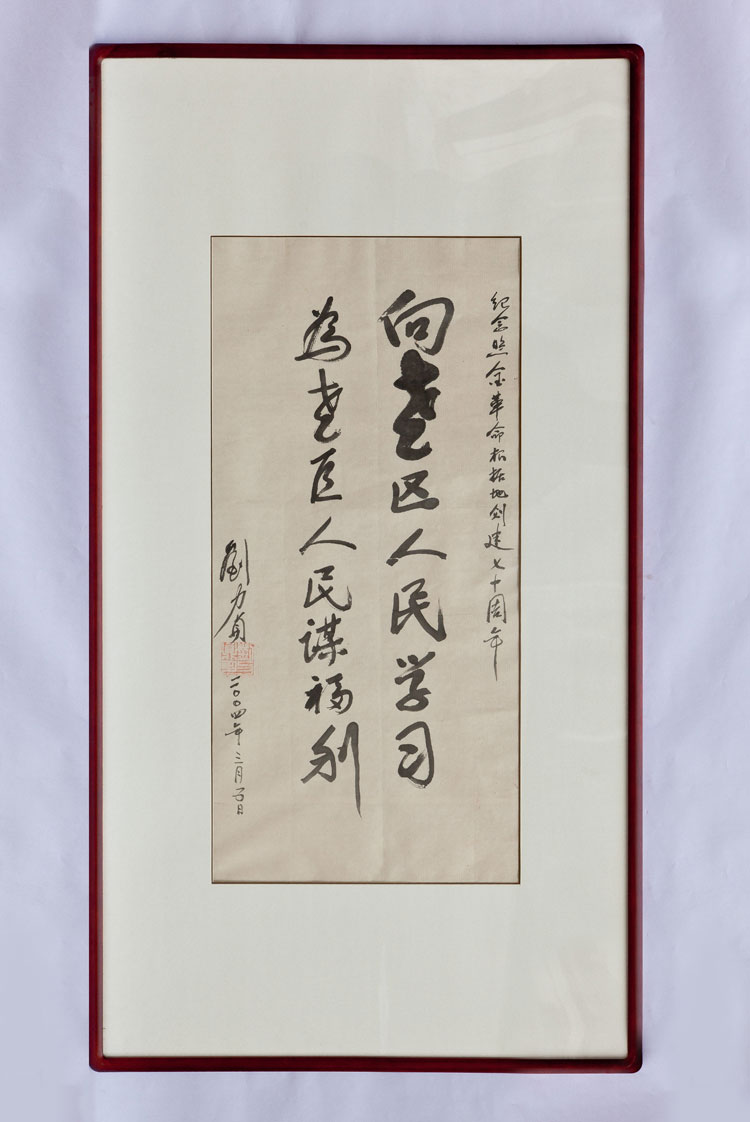 纪念照金革命根据地创建七十周年
向老区人民学习
為老区人民谋福利
劉力贞
二〇〇四年三月 日